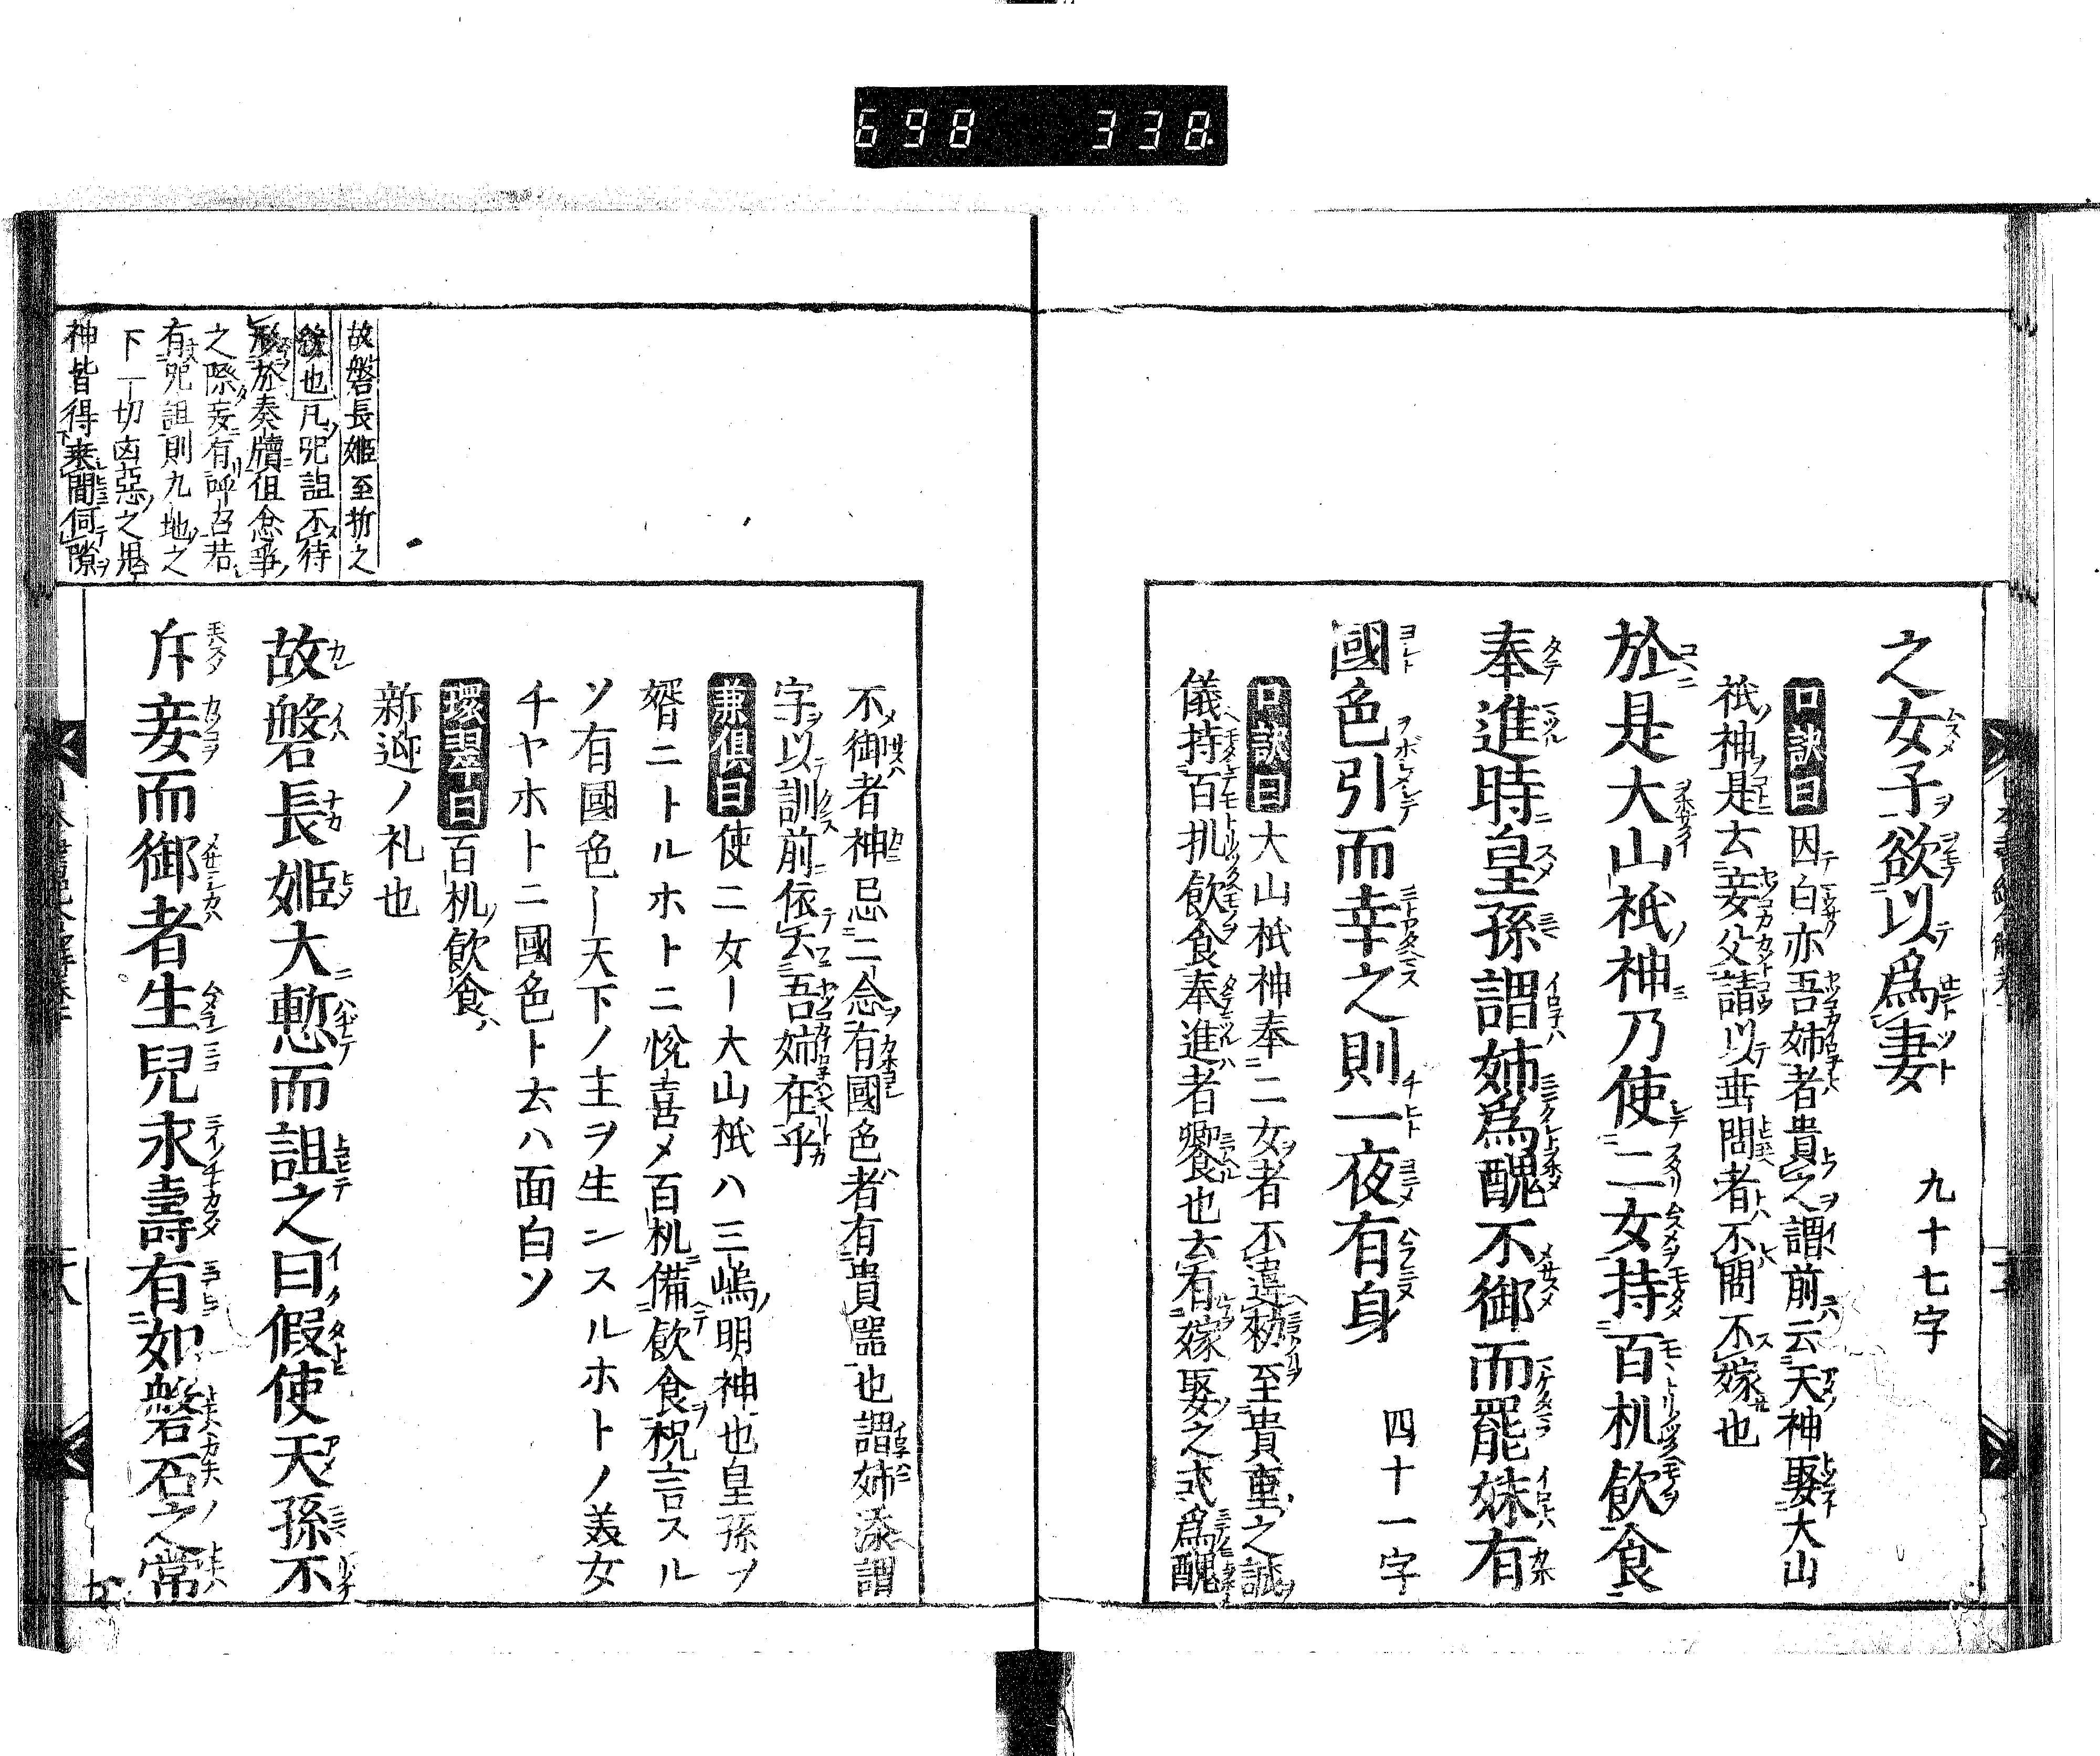 698 338.
之女子欲以爲妻 九十七字
口訣曰因白亦吾姉者貴之謂前云天神娶大山
祇神是去妾父請以垂問者不問不嫁也
於是大山祇神乃使二女持百机飲食
奉進時皇孫謂姉爲醜不御而罷妹有
國色引而幸之則一夜有身 四十一字
口訣曰大山祇神奉二女者不違勅至貴重之誠
儀持百机飲食奉進者饗也去有嫁娶之式爲醜
不御者神忌二念有國色者有貴噐也謂姉添謂
字以訓前依云吾姉在乎
兼倶曰使二女ー大山祇ハ三嶋明神也皇孫ヲ
婿ニトルホトニ悅喜メ百机備飲食祝言スル
ソ有國色ー天下ノ主ヲ生ンスルホトノ美女
チヤホトニ國色ト云ハ面白ソ
環翠曰百机飲食ハ
新迎ノ礼也
故磐長姬大慙而詛之曰假使天孫不
斥妾而御者生兒永壽有如磐石之常
故磐長姬至折之
也凡咒詛不待
形於奏牘但念事
之際妄有呼召若
有咒詛則九地之
下一切凶惡之鬼
神皆得乗間伺隙